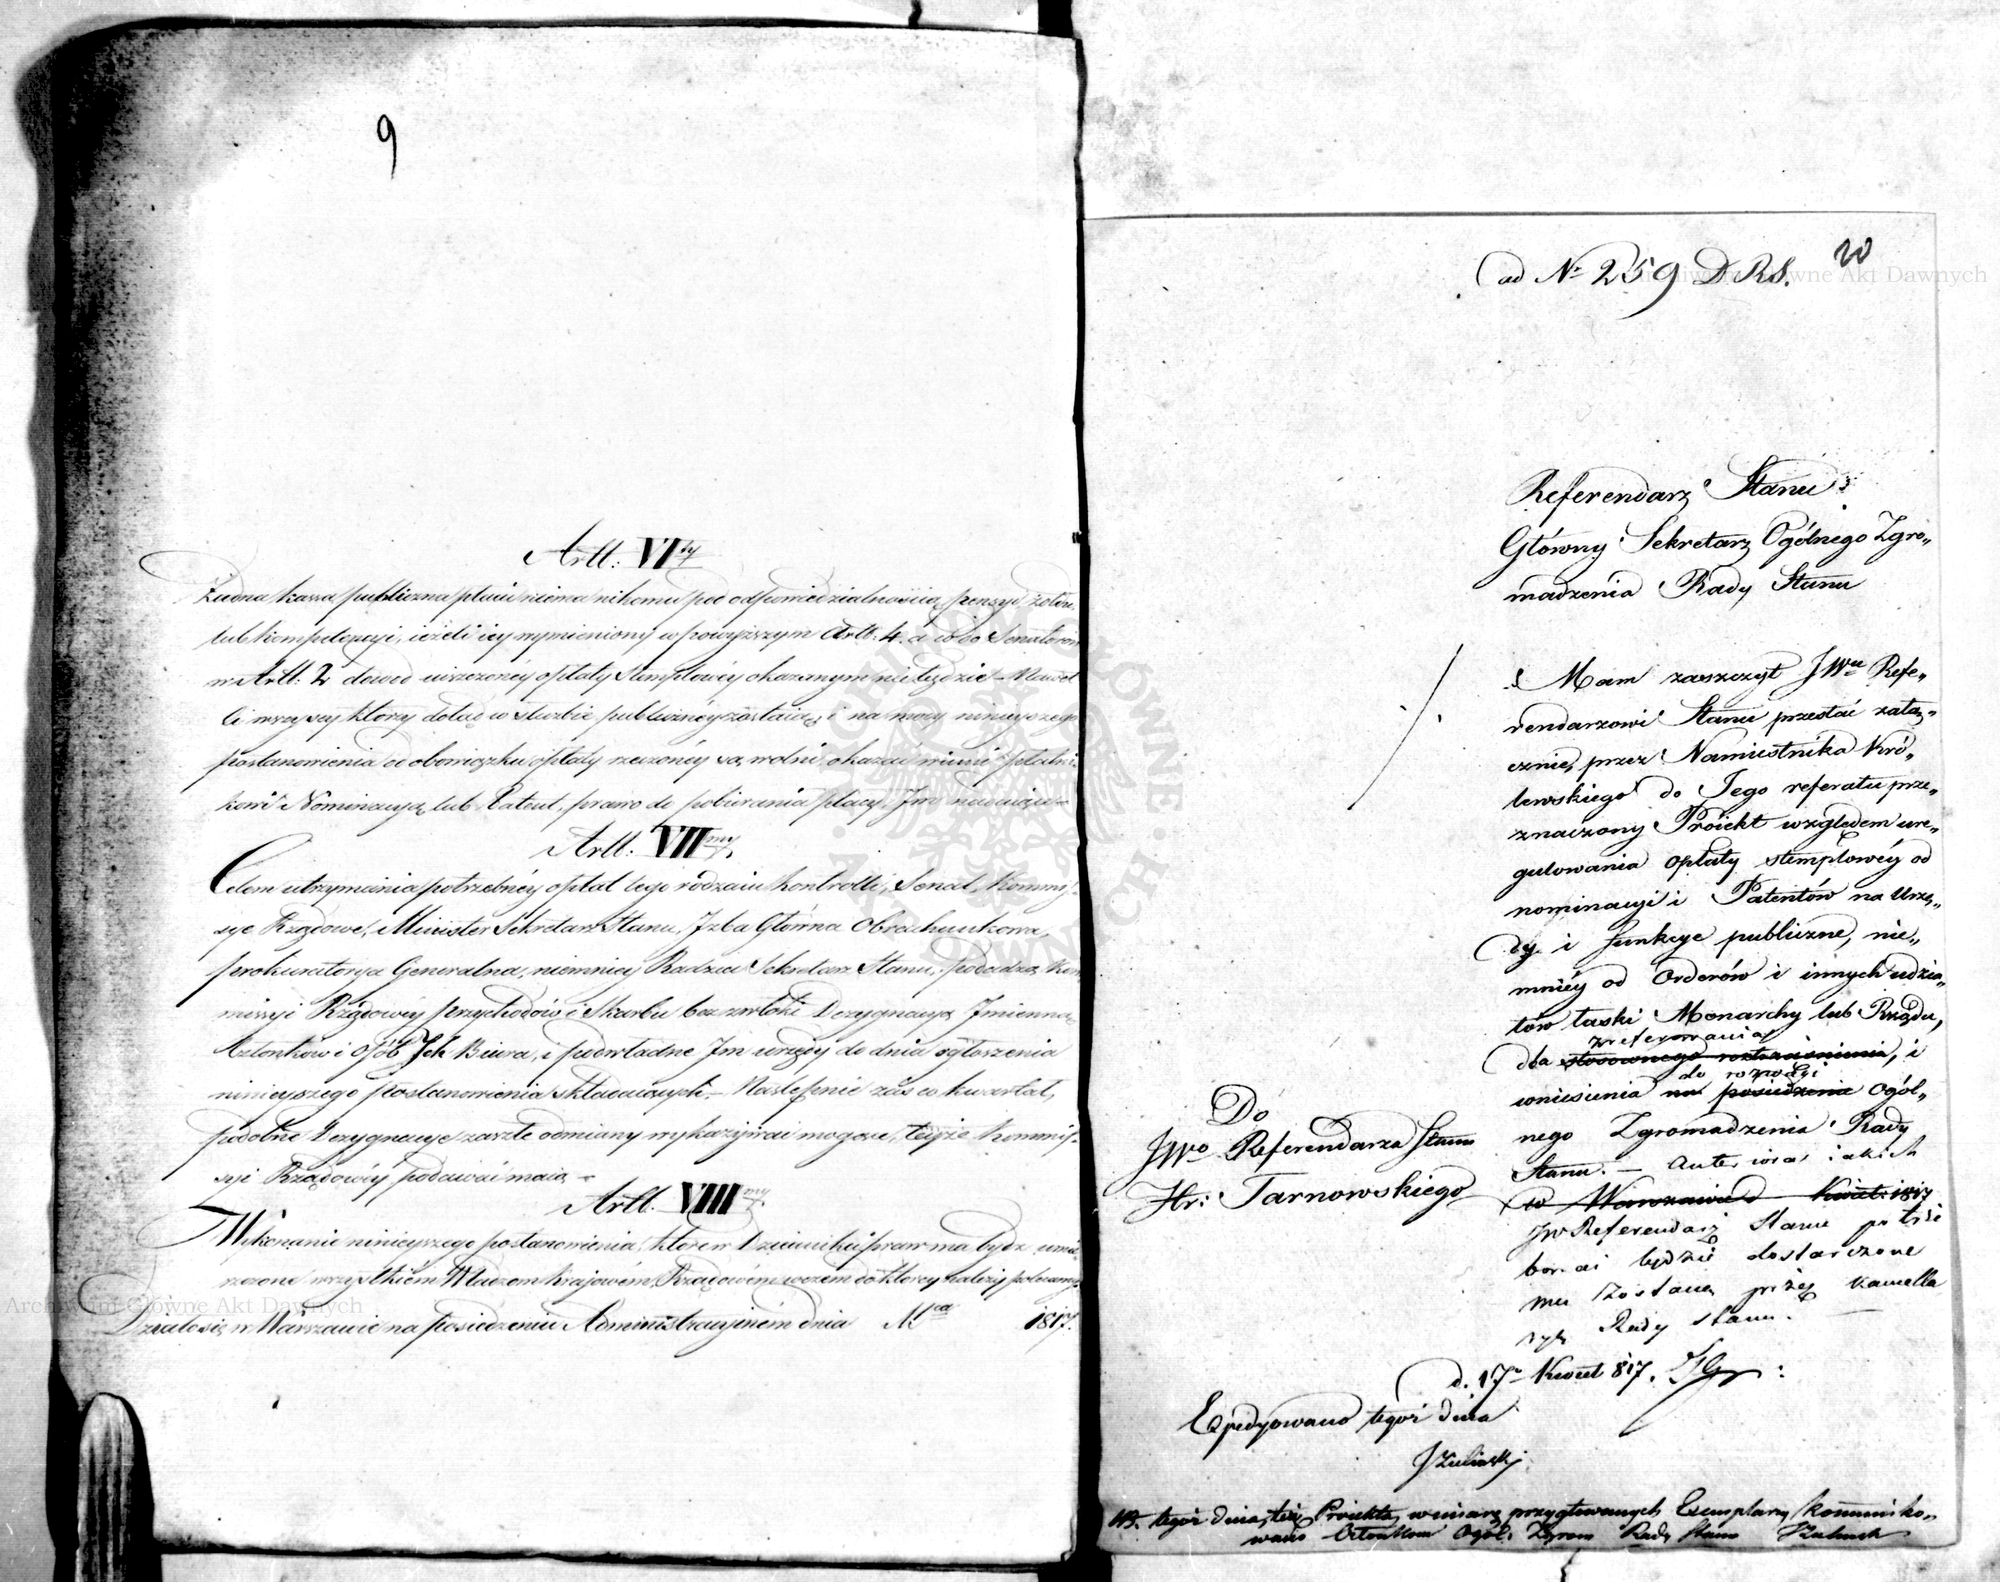 9
Artt: VI ty
Żadna kassa publiczna płacić niema nikomu pod odpowiedzialnością pensyi, żołdu,
lub kompetencyi, ieżeli iey wymieniony w powyższym Artt: 4. a co do Senatorów
w Artt: 2 dowód uiszczonéy opłaty stemplowéy okazanym nie będzie – Nawet
ci wszyscy którzy dotąd w służbie publicznéy zostaią, i na mocy ninieyszego
postanowienia od obowiązku opłaty rzeczonéy są wolni okazać winni płatni-
kowi Nominacyą lub Patent, prawo do pobierania płacy Im nadaiące
Artt: VII my
Celem utrzymania potrzebnéy opłat tego rodzaiu kontrolli, Senat, Kommis-
sye Rządowe, Minister Sekretarz Stanu, Izba Główna Obrachunkowa,
prokuratorya Generalna, niemniey Radzca Sekretarz Stanu, podadzą Kom-
missyi Rządowéy przychodów i Skarbu bez zwłoki Dezygnacyą Imienną
Członków i osób Ich Biura, i podwładne Im urzędy do dnia ogłoszenia
ninieyszego postanowienia składaiących. – Następnie zaś co kwartał,
podobne Dezygnacye zaszłe odmiany wykazywać mogące, teyże Kommis-
syi Rządowéy podawać maią –
Artt. VIII my
Wykonanie ninieyszego postanowienia, które w Dzienniku praw ma bydź umie-
szczone wszystkiem Władzom Kraiowém, Rządowém w czem do któréy należy polecamy.
Działo się w Warszawie na posiedzeniu Administracyiném dnia Mca 1817.
ad No 259 D.R.S.
20
Referendarz Stanu
Główny Sekretarz Ogólnego Zgro„
madzenia Rady Stanu
Mam zaszczyt JWu Refe„
rendarzowi Stanu przesłać załą„
cznie, przez Namiestnika Kró„
lewskiego do Jego referatu prze„
znaczony Proiekt względem ure„
gulowania opłaty stemplowéy od
nominacyi i Patentów na Urzę„
dy i funkcye publiczne, nie„
mniéy od Orderów i innych udzia„
łów łaski Monarchy lub Rządu,
zreferowania
dla stosownego roztrząśnienia, i
do rozwagi
wniesienia na posiedzenie Ogól„
nego Zgromadzenia Rady
Stanu. – Autenora iakich
w Warszawie d Kwiet: 1817
JW Referendarz Stanu potrze
bować będzie dostarczone
mu zostaną przez Kancella
ryą Rady Stanu.
Do
JWo Referendarza Stanu
Hr: Tarnowskiego
d. 17 Kwiet 817.
Expedyowano tegoż dnia
NB. tegoż dnia, też Proiekta, w miarę przygotowanych Exemplarzy kommuniko„
wano Członkom Ogól: Zgrom Rady Stanu